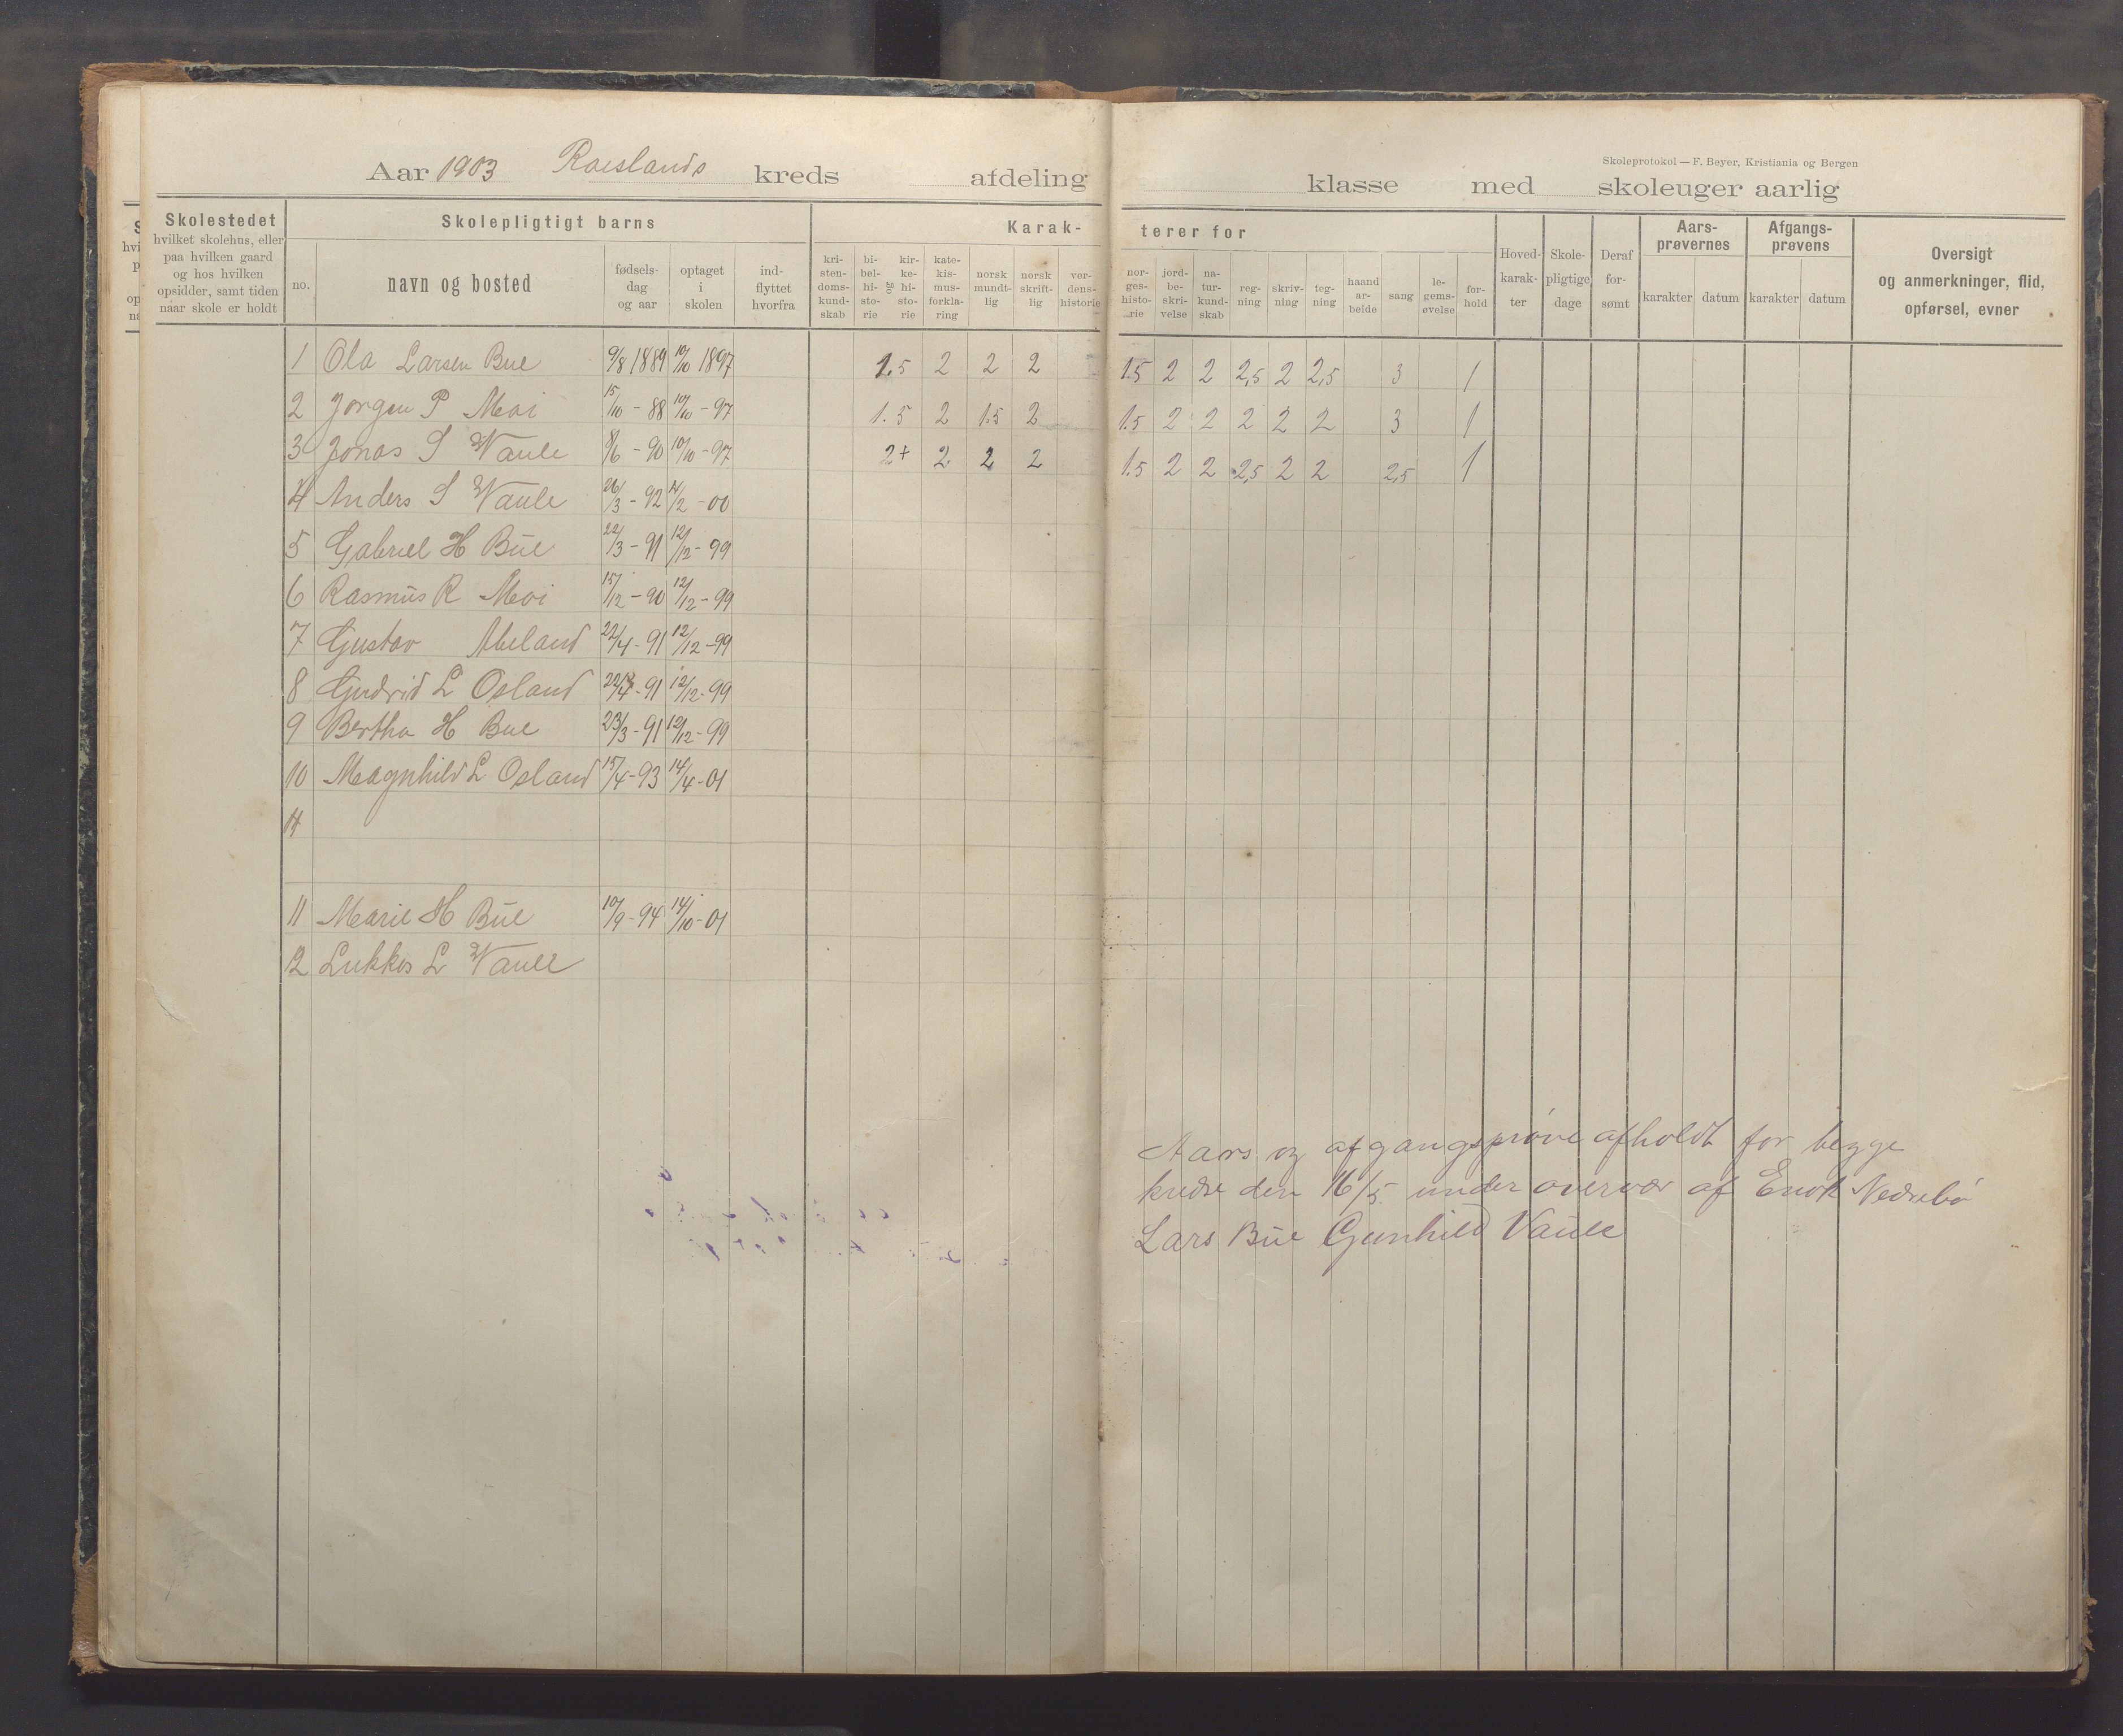 Skoleprotokol — F. Beyer, Kristiania og Bergen
Aar 1903 Roeslands kreds afdeling klasse med skoleuger aarlig
Skolestedet
hvilket skolehus, eller
paa hvilken gaard
og hos hvilken
opsidder, samt tiden
naar skole er holdt
Skolepligtigt barns
no.
navn og bosted
fødsels-
dag
og aar
optaget
i
skolen
ind-
flyttet
hvorfra
Karak-
kri-
sten-
doms-
kund-
skab
bi-
bel-
hi-
sto-
rie
og
kir-
ke-
hi-
sto-
rie
kate-
kis-
mus-
forkla-
ring
norsk
mundt-
lig
norsk
skrift-
lig
ver-
dens-
historie
terer for
nor-
ges-
histo-
rie
jord-
be-
skri-
velse
na-
tur-
kund-
skab
reg-
ning
skriv-
ning
teg-
ning
haand
ar-
beide
sang
le-
gems-
øvelse
for-
hold
Hoved-
karak-
ter
Skole-
pligtige
dage
Deraf
for-
sømt
Aars-
prøvernes
karakter datum
Afgangs-
prøvens
karakter datum
Oversigt
og anmerkninger, flid,
opførsel, evner
1 Ola Larsen Bue 9/8 1889 10/10 1897 1.5 2 2 2 1.5 2 2 2,5 2 2,5 3 1
2 Jørgen P Moi 15/10 - 88 10/10 - 97 1.5 2 1.5 2 1.5 2 2 2 2 2 3 1
3 Jonas S Vaule 8/6 - 90 10/10 - 97 2+ 2 2 2 1.5 2 2 2,5 2 2 2,5 1
4 Anders S Vaule 26/3 - 92 /2 - 00
5 Gabriel H Bue 22/3 - 91 12/12 - 99
6 Rasmus R Moi 15/12 - 90 12/12 - 99
7 Gustav Abeland 22/4 - 91 12/12 - 99
8 Gudrid L Osland 22/4 - 91 12/12 - 99
9 Bertha H Bue 23/3 - 91 12/12 - 99
10 Magnhild L Osland 15/4 - 93 14/4 - 01
11
11 Marie H Bue 10/9 - 94 14/10 - 01
12 Lukkas L Vaule
Aars og afgangsprøve afholdt for begge
kredse den 16/5 under overvær af Enok Nedrebø
Lars Bue Gunhild Vaule